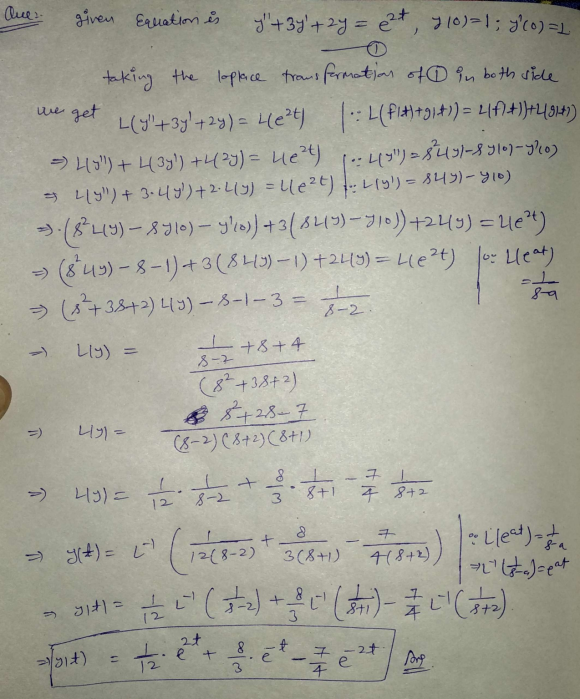 Que:- given Equation is y''+3y'+2y = e^{2t}, y(0)=1; y'(0)=1
①
taking the laplace transformation of ① in both side
we get L(y''+3y'+2y) = L(e^{2t}) |∵ L(f(t)+g(t)) = L(f(t))+L(g(t))
⇒ L(y'') + L(3y') + L(2y) = L(e^{2t}) |∵ L(y'') = s²L(y)-sy(0)-y'(0)
⇒ L(y'') + 3·L(y') + 2·L(y) = L(e^{2t}) |∵ L(y') = sL(y)-y(0)
⇒ (s²L(y) - sy(0) - y'(0)) + 3(sL(y) - y(0)) + 2L(y) = L(e^{2t})
⇒ (s²L(y) - s - 1) + 3(sL(y) - 1) + 2L(y) = L(e^{2t}) |∵ L(e^{at}) = 1/(s-a)
⇒ (s²+3s+2) L(y) - s - 1 - 3 = 1/(s-2)
⇒ L(y) = (1/(s-2) + s + 4)/(s²+3s+2)
⇒ L(y) = (s²+2s-7)/((s-2)(s+2)(s+1))
⇒ L(y) = 1/12 · 1/(s-2) + 8/3 · 1/(s+1) - 7/4 1/(s+2)
⇒ y(t) = L⁻¹ (1/(12(s-2)) + 8/(3(s+1)) - 7/(4(s+2))) |∵ L(e^{at}) = 1/(s-a)
⇒ L⁻¹(1/(s-a)) = e^{at}
⇒ y(t) = 1/12 L⁻¹(1/(s-2)) + 8/3 L⁻¹(1/(s+1)) - 7/4 L⁻¹(1/(s+2))
⇒ y(t) = 1/12 · e^{2t} + 8/3 · e^{-t} - 7/4 e^{-2t} Ans